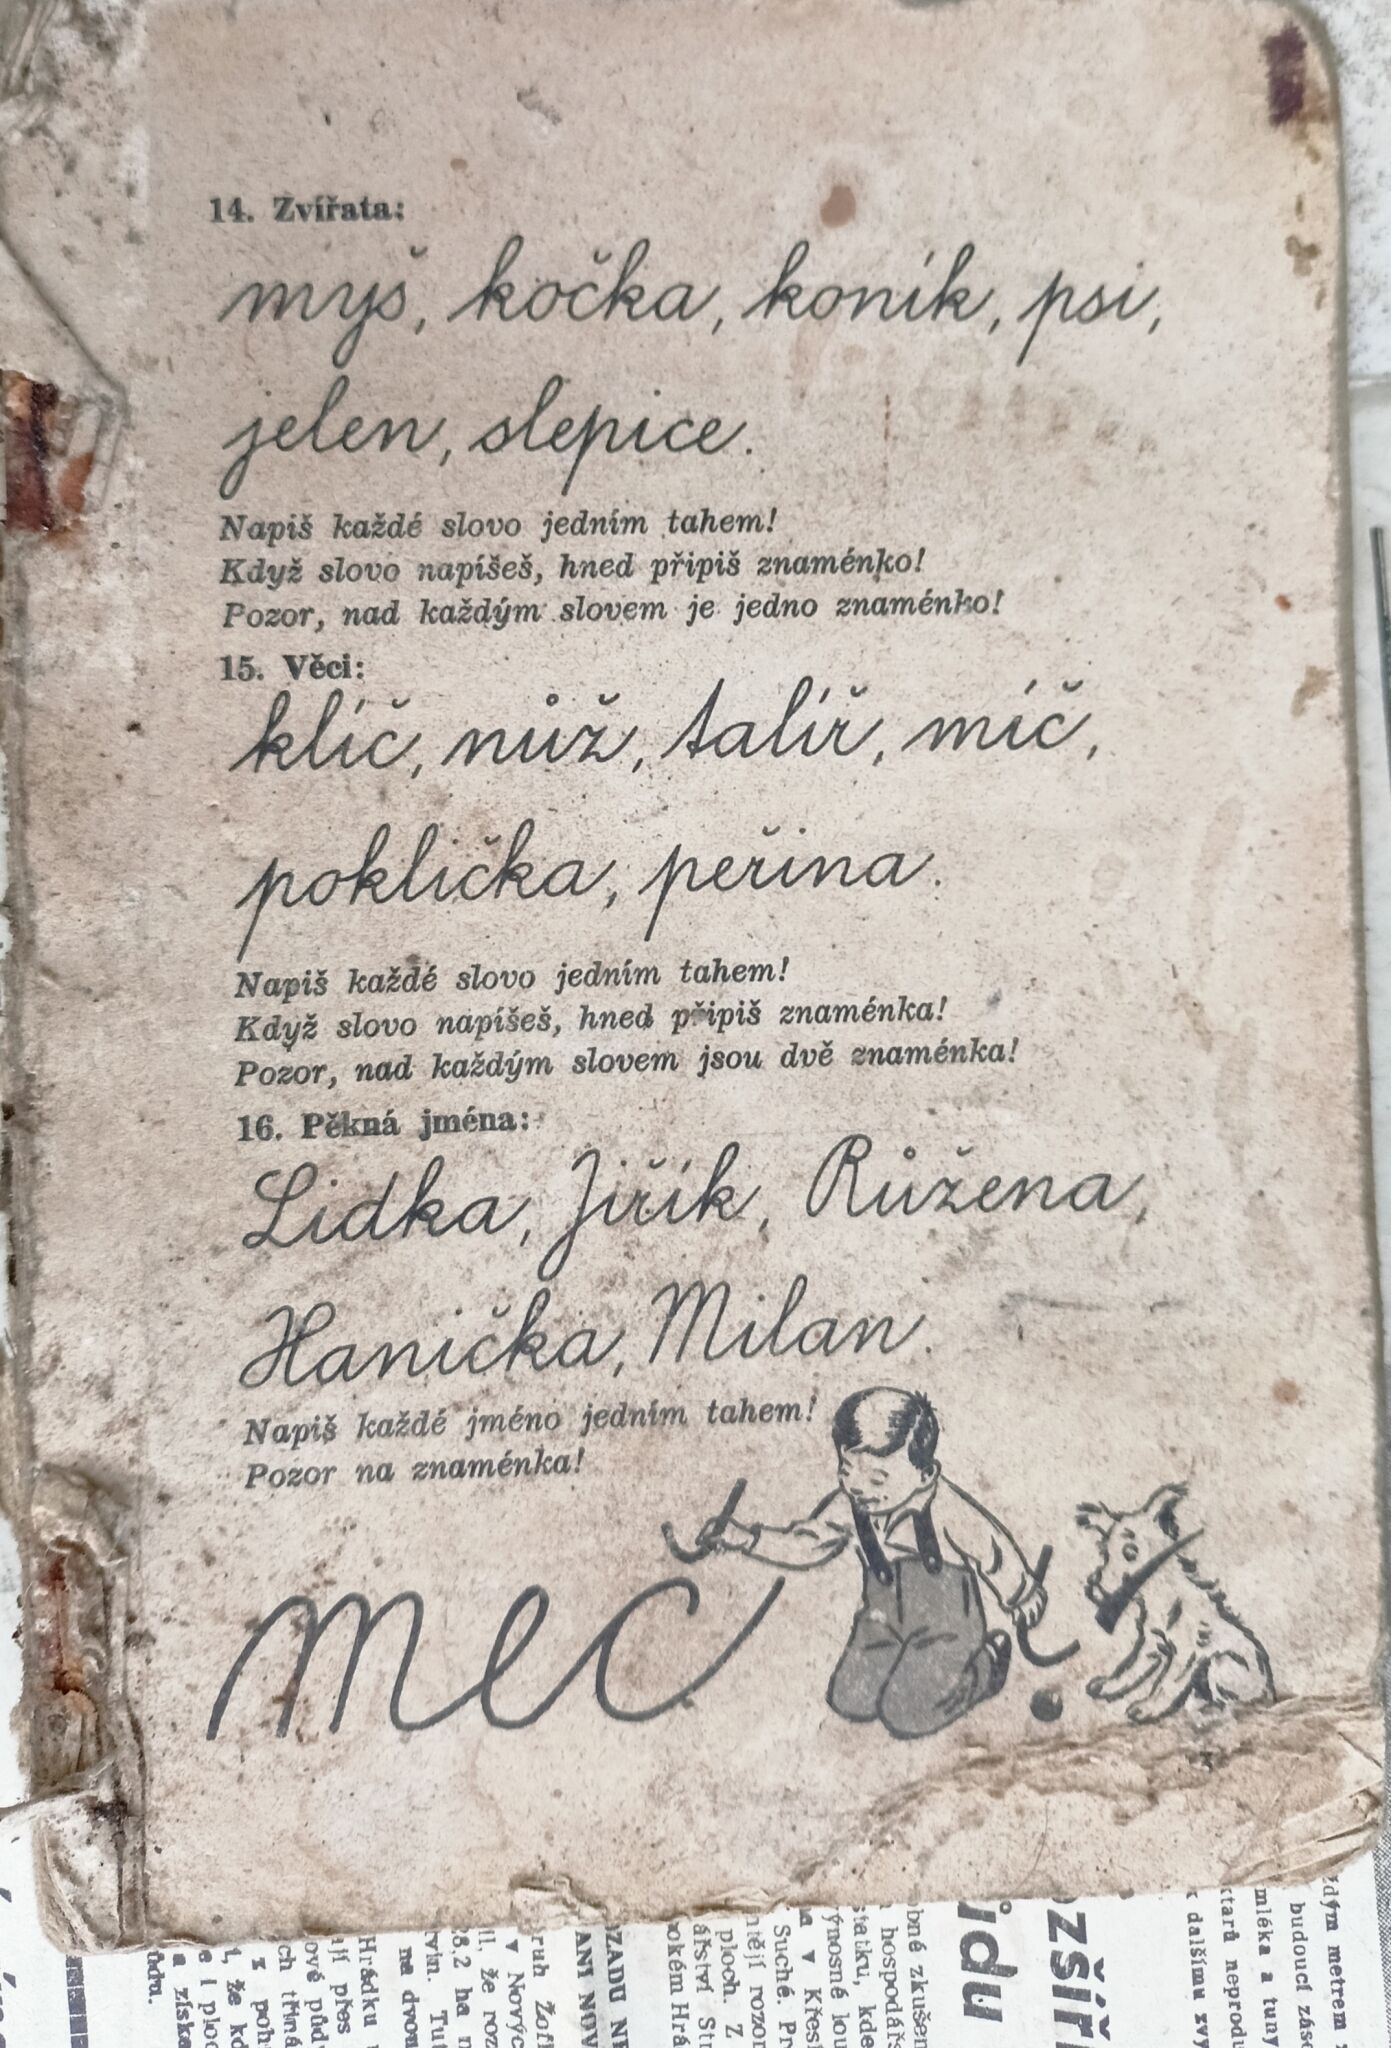 14. Zvířata:
myš, kočka, koník, psi,
jelen, slepice.
Napiš každé slovo jedním tahem!
Když slovo napíšeš, hned připiš znaménko!
Pozor, nad každým slovem je jedno znaménko!
15. Věci:
klíč, nůž, talíř, míč,
poklička, peřina.
Napiš každé slovo jedním tahem!
Když slovo napíšeš, hned připiš znaménka!
Pozor, nad každým slovem jsou dvě znaménka!
16. Pěkná jména:
Lidka, Jiřík, Růžena,
Hanička, Milan.
Napiš každé jméno jedním tahem!
Pozor na znaménka!
mec